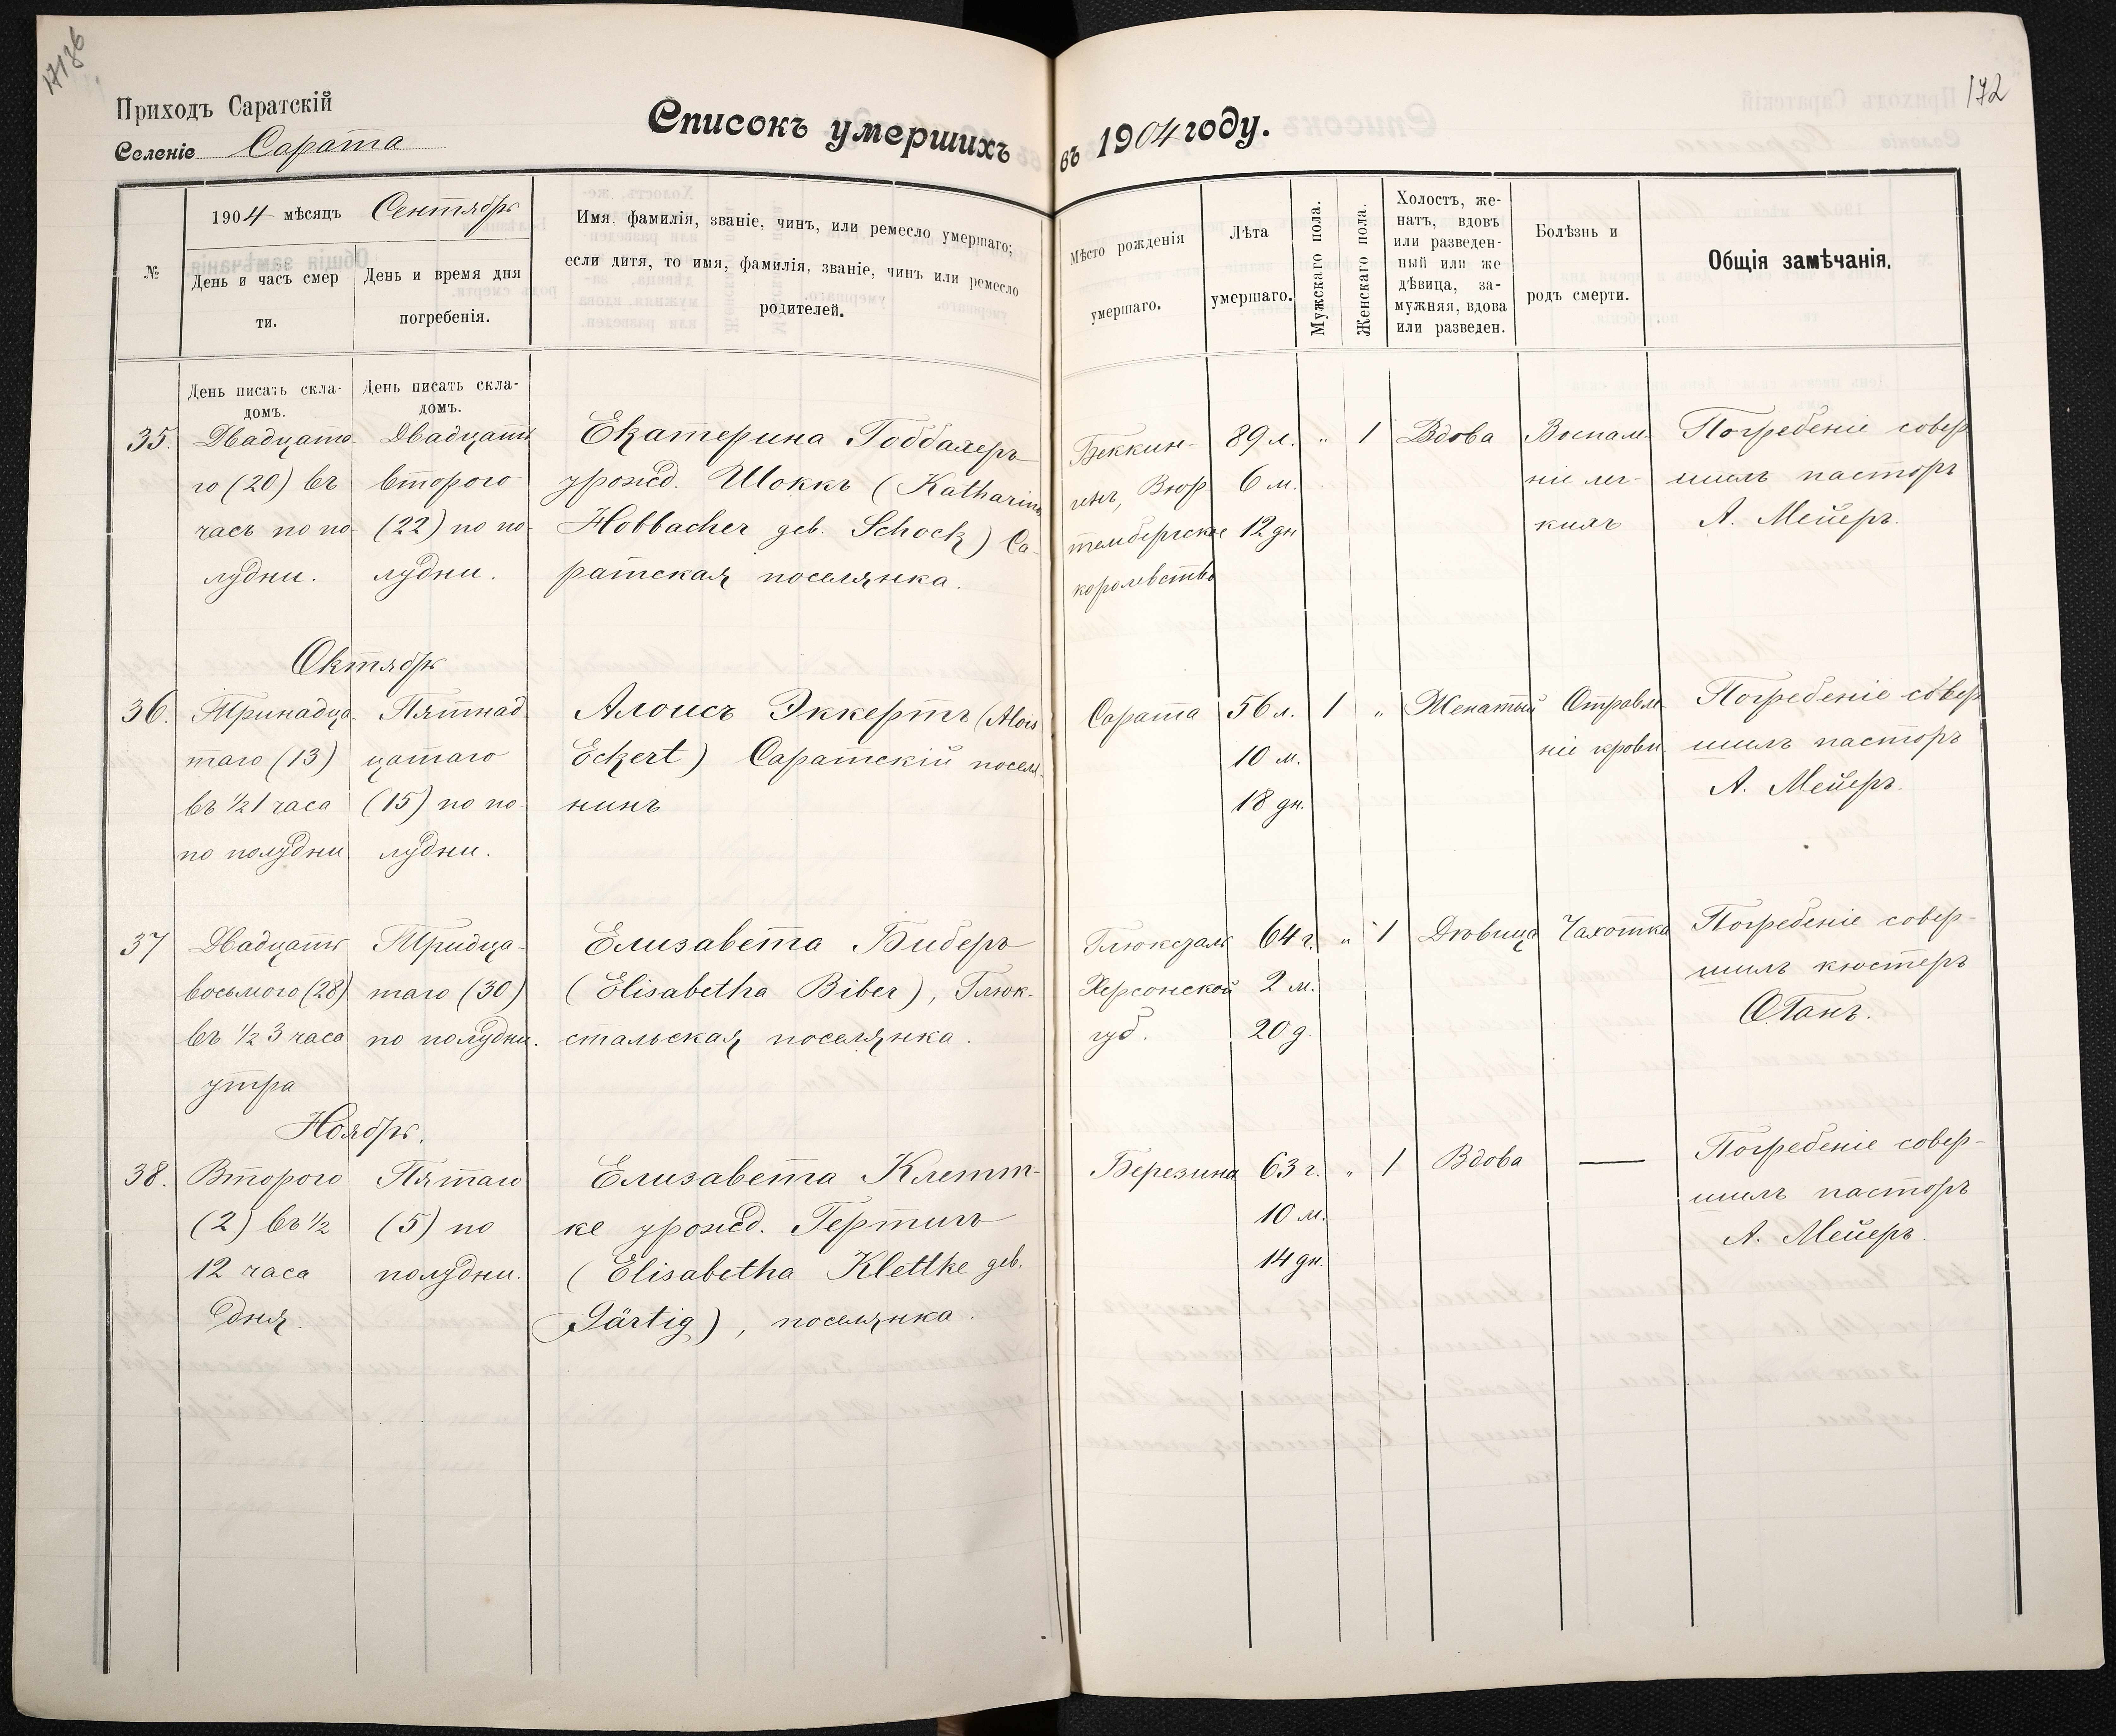 171 об
172
Приходъ Саратскій
Селеніе Сарата
Списокъ умершихъ въ 1904 году.
№
1904 мѣсяцъ Сентябрь
День и часъ смер
ти.
День и время дня
погребенія.
Имя, фамилія, званіе, чинъ, или ремесло умершаго;
если дитя, то имя, фамилія, званіе, чинъ или ремесло
родителей.
Мѣсто рожденія
умершаго.
Лѣта
умершаго.
Мужскаго пола.
Женскаго пола.
Холостъ, же-
натъ, вдовъ
или разведен-
ный или же
дѣвица, за-
мужняя, вдова
или разведен.
Болѣзнь и
родъ смерти.
Общія замѣчанія.
День писать скла-
домъ.
День писать скла-
домъ.
35.
Двадцата-
го (20) въ
часъ по по-
лудни.
Двадцать
второго
(22) по по-
лудни.
Екатерина Гоббахеръ
урожд. Шоккъ (Katharina
Hobbacher geb. Schock) Са-
ратская поселянка.
Беккин-
генъ, Вюр-
тембергское
королевство
89 л.
6 м.
12 дн
„
1
Вдова
Воспале-
ніе лег-
кихъ
Погребеніе совер
шилъ пасторъ
А. Мейеръ.
Октябрь
36.
Тринадца-
таго (13)
въ ½ 1 часа
по полудни.
Пятнад-
цатаго
(15) по по-
лудни.
Алоисъ Эккертъ (Alois
Eckert) Саратскій поселя-
нинъ
Сарата
56 л.
10 м.
18 дн.
1
„
Женатый
Отравле-
ніе крови.
Погребеніе совер
шилъ пасторъ
А. Мейеръ.
37
Двадцать
восьмого (28)
въ ½ 3 часа
утра
Тридца-
таго (30)
по полудни.
Елизавета Биберъ
(Elisabetha Biber), Глюк-
стальская поселянка.
Глюксталь
Херсонской
губ.
64 г.
2 м.
20 д.
„
1
Дѣвица
Чахотка
Погребеніе совер-
шилъ кюстеръ
Ноябрь.
38.
Второго
(2) въ ½
12 часа
дня.
Пятаго
(5) по
полудни.
Елизавета Клетт-
ке урожд. Гертигъ
(Elisabetha Klettke geb.
Gärtig), поселянка.
Березина
63 г.
10 м.
14 дн.
„
1
Вдова
—
Погребеніе совер-
шилъ пасторъ
А. Мейеръ.